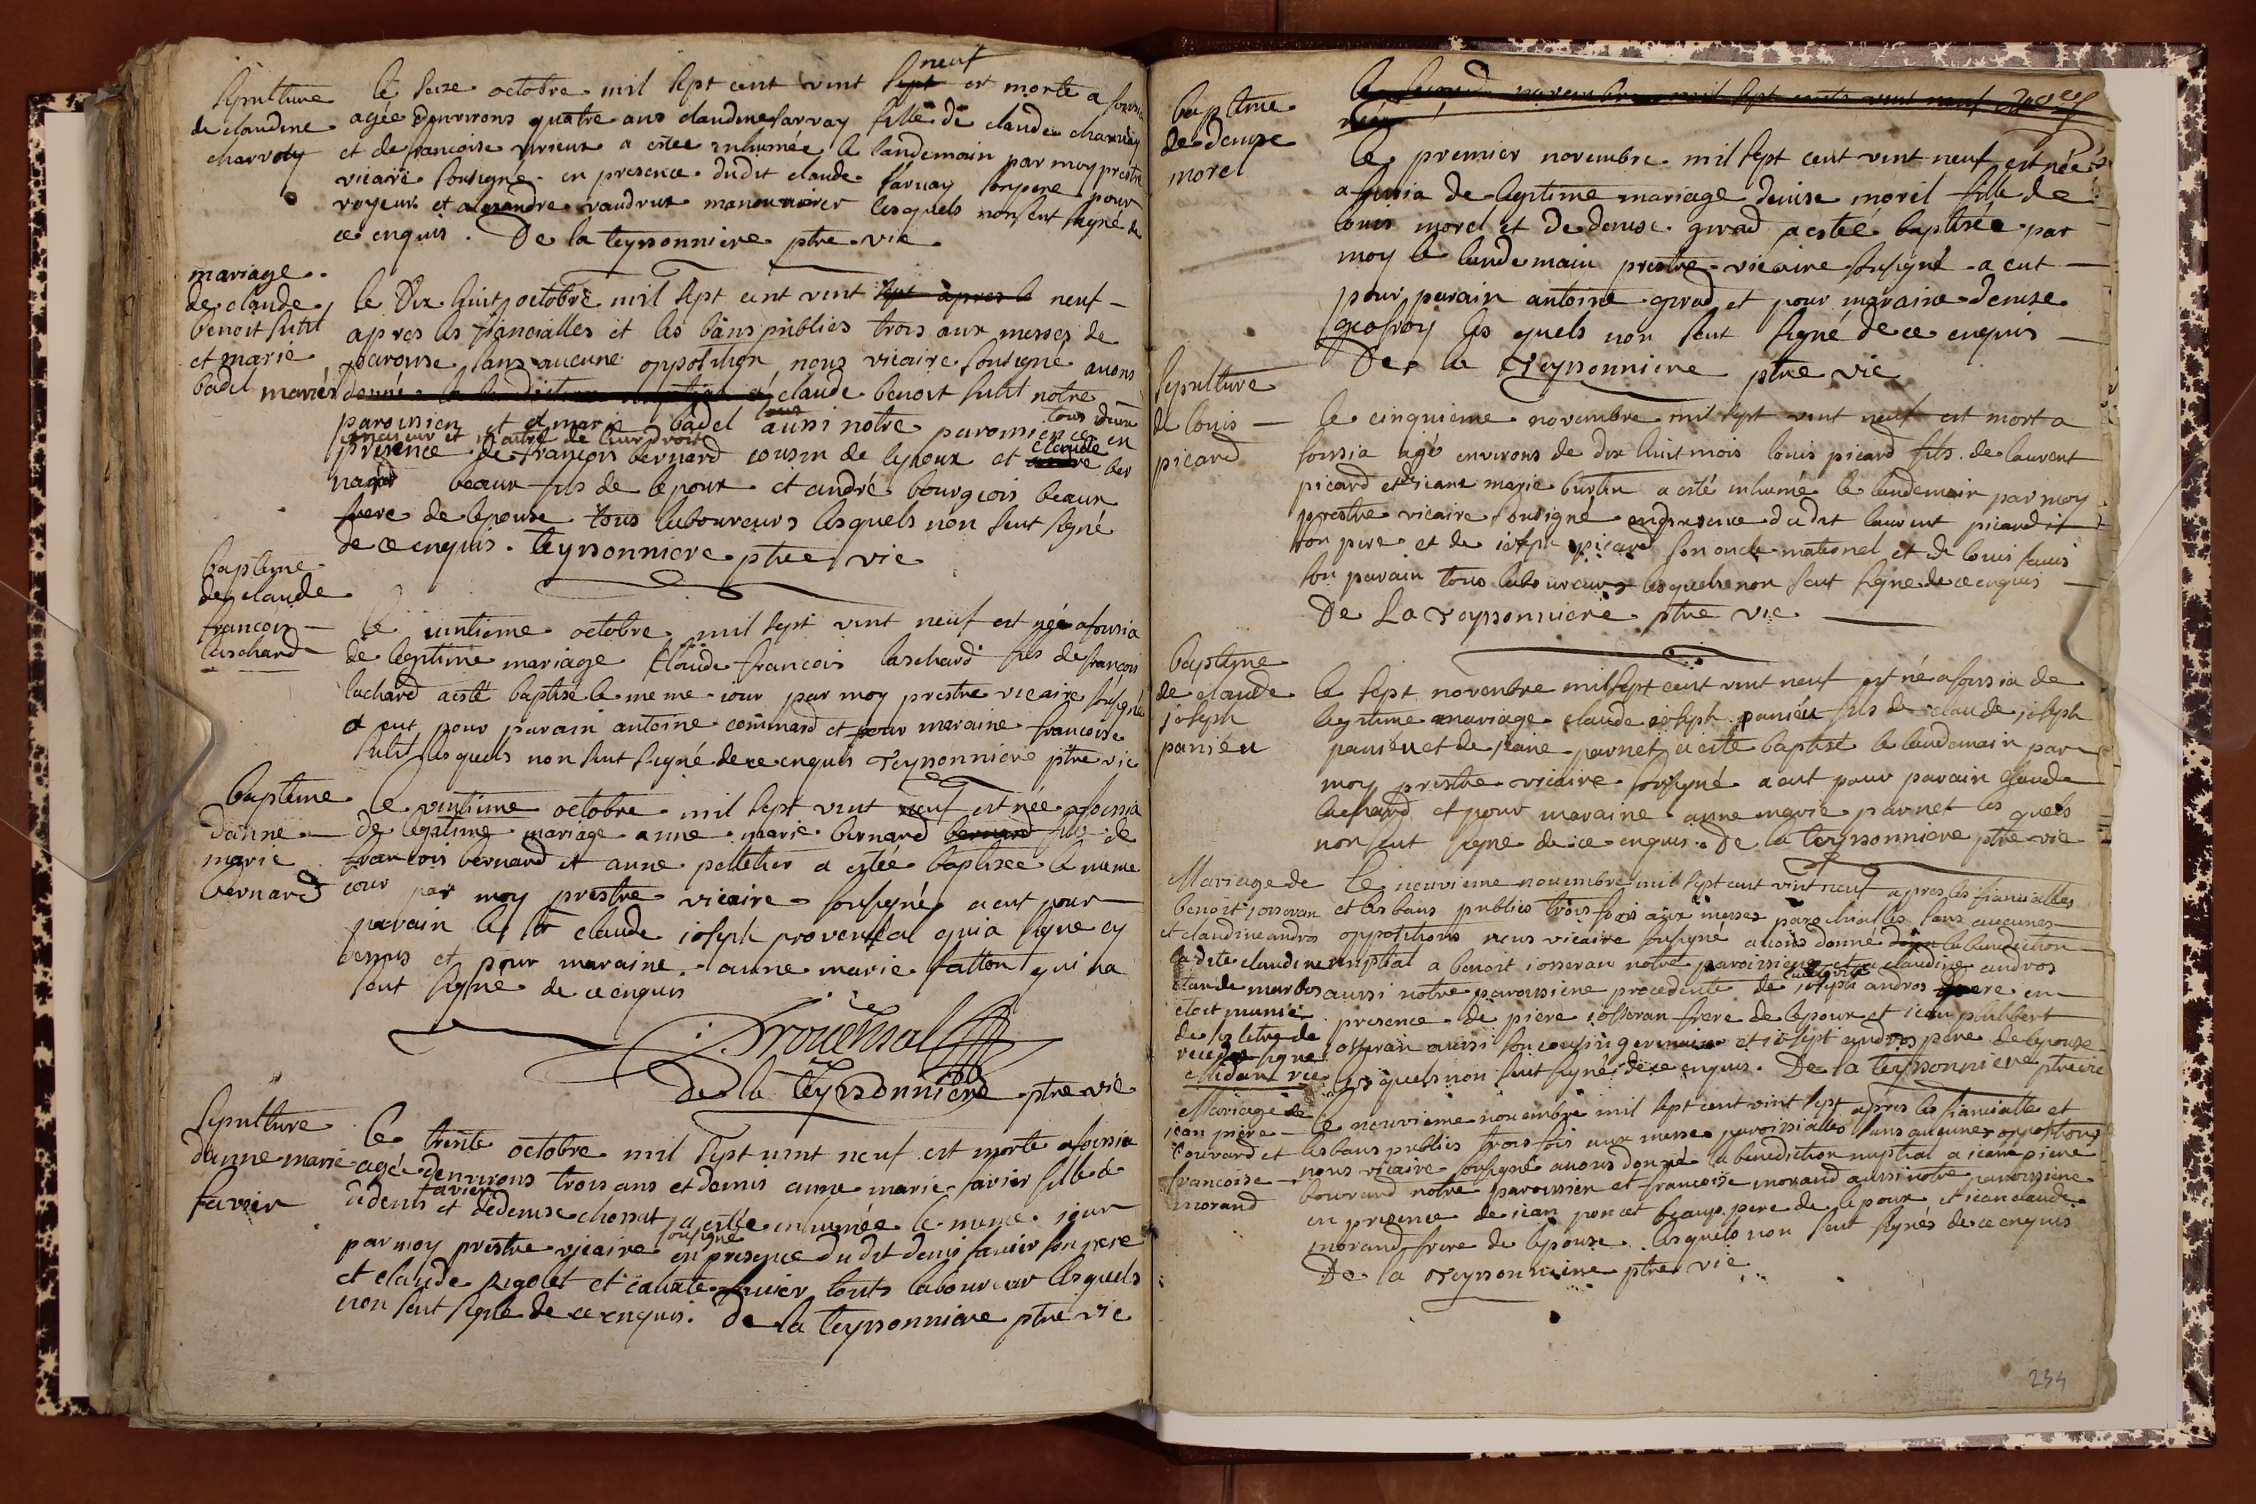 Sepulture
de claudine
charvoty
le seize octobre mil sept cent vint neuf est morte a
agée denvirons quatre ans claudine sarvay fille de claude
et de francoise a estee inhumée le landemain par moy prestre
vicaire sousigné en presence dudit claude sarvay son pere
et manouvrier lesquels nonsent signé de
ce enquis. De la teyssonniere ptre vic
mariage
de claude
benoit sutit
et marie
badel mariés
le dix huit octobre mil sept cent vint sept apres le neuf
apres les fiancialles et les bans publies trois aux messes de
paroisse sans aucune opposition nous vicaire sousigné avons
donné claude benoit sutit notre
paroissien et marie badel aussi notre paroissiene
presence de francois bernard cousin de lepoux et claude ber
nard beaux fils de lepoux et andré bourgeois beaux
frere de lepouse tous laboureurs lesquels non sent signé
de ce enquis. teyssonniere ptre vic
bapteme
de claude
francois
laschard
le vintieme octobre mil sept vint neuf est né a foissia
de legitime mariage claude francois laschard fils de francois
lachard a esté baptisé le meme iour par moy prestre vicaire sousigné
a eut pour parain antoine commard et pour maraine francoise
sutit lesquels non sent signé de ce enquis Teyssonniere ptre vic
bapteme
danne
marie
bernard
Le vintieme octobre mil sept vint neuf est née a foissia
de legitime mariage anne marie bernard bernard fils de
francois bernard et anne pelletier a estée baptisée le meme
iour par moy prestre vicaire sousigné a eut pour
parain le sr claude ioseph provensal qui a signé cy
dessous et pour maraine anne marie fatton qui na
sent signé de ce enquis
Provensal
De la teyssonniere ptre vic
Sepulture
danne marie
favier
Le trente octobre mil sept vint neuf est morte a foissia
agée denvirons trois ans et demis anne marie favier fille de
denis favier et de denise chossat a estée inhumée le meme iour
par moy prestre vicaire sousigné en presence du dit denis favier son pere
et claude Rigolet et favier touts laboureur lesquels
non sent signé de ce enquis. De la teyssonniere ptre vic
baptême
de denise
morel
le novembre mil sept cents vint neuf
Le premier novembre mil sept cent vint neuf est née
a foissia de legitime mariage denise morel fille de
louis morel et de denise girad a estée baptisée par
moy le landemain prestre vicaire sousigné a eut
pour parain antoine girad et pour maraine denise
geofroy les quels non sent signé de ce enquis
De la Teyssonniere ptre vic
Sepulture
de louis
picard
le cinquieme novembre mil sept vint neuf est mort a
foissia agé environs de dix huit mois louis picard fils de laurent
picard et de ieane marie burtin a esté inhumé le landemain par moy
prestre vicaire sousigné en presence du dit laurent picard
son pere et de ioseph picard son oncle maternel et de louis
son parain tous laboureurs lesquels non sent signe de ce enquis
De La Teyssonniere ptre vic
baptême
de claude
joseph
panieu
le sept novembre mil sept cent vint neuf est né a foissia de
legitime mariage claude ioseph panieu fils de claude ioseph
panieu et de parnet a esté baptisé le landemain par
moy prestre vicaire sousigné a eut pour parain claude
lachard et pour maraine anne marie parnet les quels
non sent signe de ce enquis. De la teyssonniere ptre vic
Mariage de
benoit josseran
et claudine andros
la dite claudine
etoit munie
de sa letre de
signe
vic
Le neuvieme novembre mil sept cent vint neuf apres les fiancialles
et les bans publies trois fois aux messes parochialles sans aucunes
oppositions nous vicaire sousigné avons donné la benediction
nuptial a benoit iosseran notre paroissien et a claudine andros
aussi notre paroissiene procedente de ioseph andros en
presence de piere iosseran frere de lepoux et iean philibert
osseran aussi son cousin germain et iosept andros pere de lepouse
les quels non sent signé de ce enquis. De la teyssonniere ptre vic
Mariage de
iean piere
bouvard et
francoise
morand
Le neuvieme novembre mil sept cent vint sept apres les fiancialle et
les bans publies trois fois aux messes paroissialles sans aucunes oppositions
nous vicaire sousigné avons donné la benediction nuptial a iean piere
bouvard notre paroissien et francoise morand aussi notre paroissiene
en presence de iean poncet beaux pere de lepoux et iean claude
morand frere de lepouse lesquels non sent signés de ce enquis
De la Teyssonniere ptre vic
234